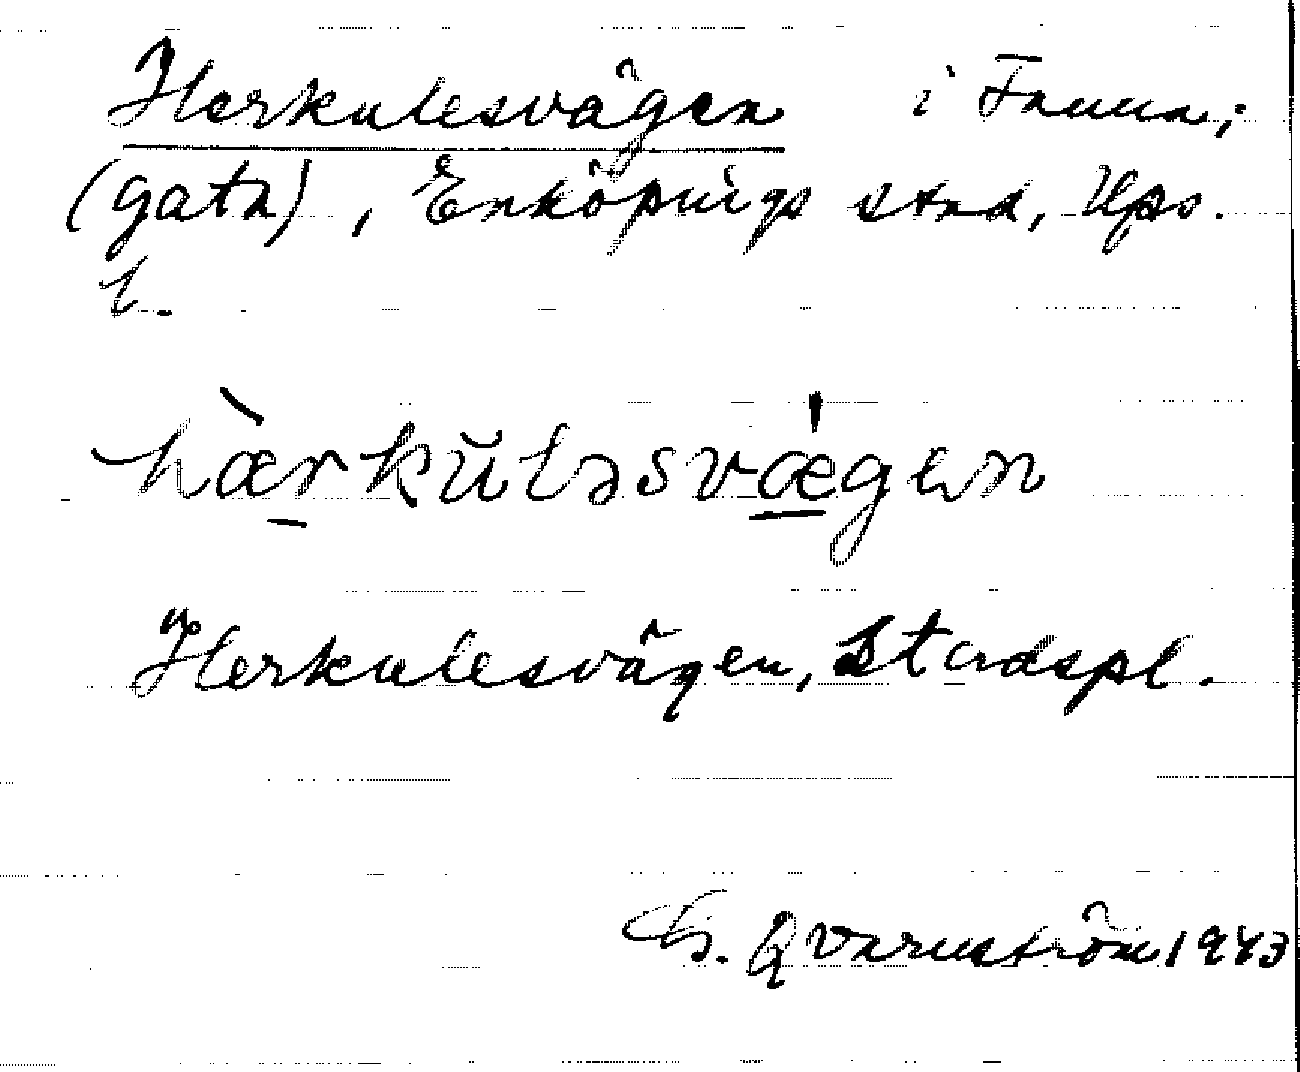 Herkulesvägen i Fanna;
(gata), Enköpings stad, Ups.
l.
hæ̀rkŭləsvæ̍gen
Herkulesvägen, Stadspl.
G. Qvarnström 1943